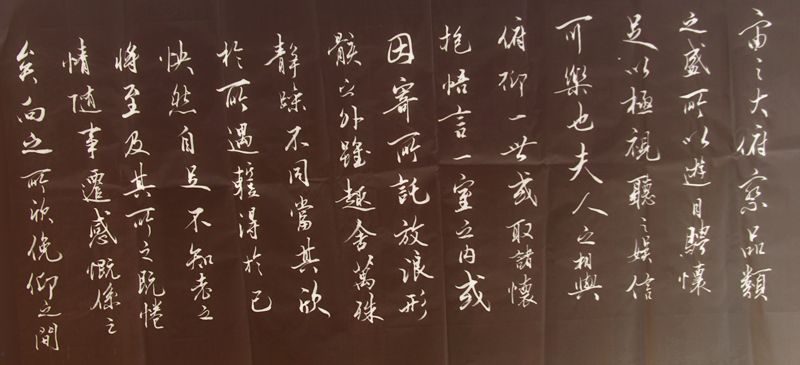 宙之大俯察品類
之盛所以遊目騁懷
足以極視聽之娱信
可樂也夫人之相與
俯仰一世或取諸懷
抱悟言一室之内或
因寄所託放浪形
骸之外雖趣舍萬殊
静躁不同當其欣
於所遇得於己
快然自足不知老之
將至及其所之既惓
情隨事遷感慨係之
矣向之所欣俛仰之間